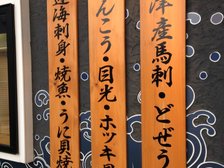 津産馬刺・どぜう
んこう・目光・ホッキ
近海刺身・焼魚・うに貝焼